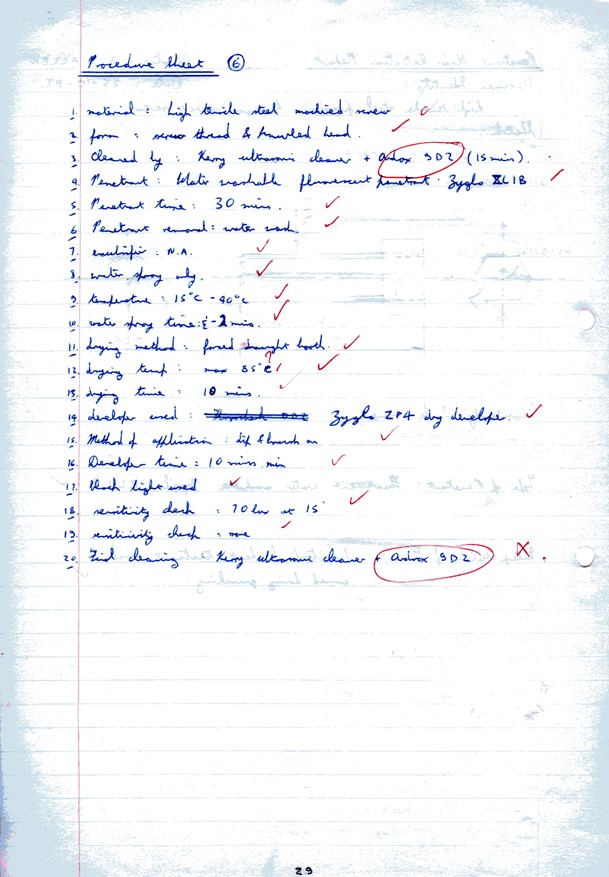 Procedure Sheet 6
1. material : high tensile steel machied screw
2. form : screw thread & knurled head.
3. Cleaned by : Kerry ultrasonic cleaner + Ardrox 9D2 (15 mins).
4. Penetrant : Water washable fluorescent penetrant. Zyglo ZL1B
5. Penetrant time : 30 mins.
6. Penetrant removal : water wash.
7. emulsifier : N.A.
8. water spray only.
9. temperature : 15°C - 40°C
10. water spray time : 2 mins.
11. drying method : forced draught booth.
12. drying temp : max 85°C
?
13. drying time : 10 mins.
14. developer used : Zyglo ZP4 dry developer.
15. Method of application : dip & brush on
16. Developer time : 10 mins min
17. black light used
18. sensitivity check : 70 lux at 15"
19. sensitivity check : none
20. Final cleaning : Kerry ultrasonic cleaner + Ardrox 9D2
29